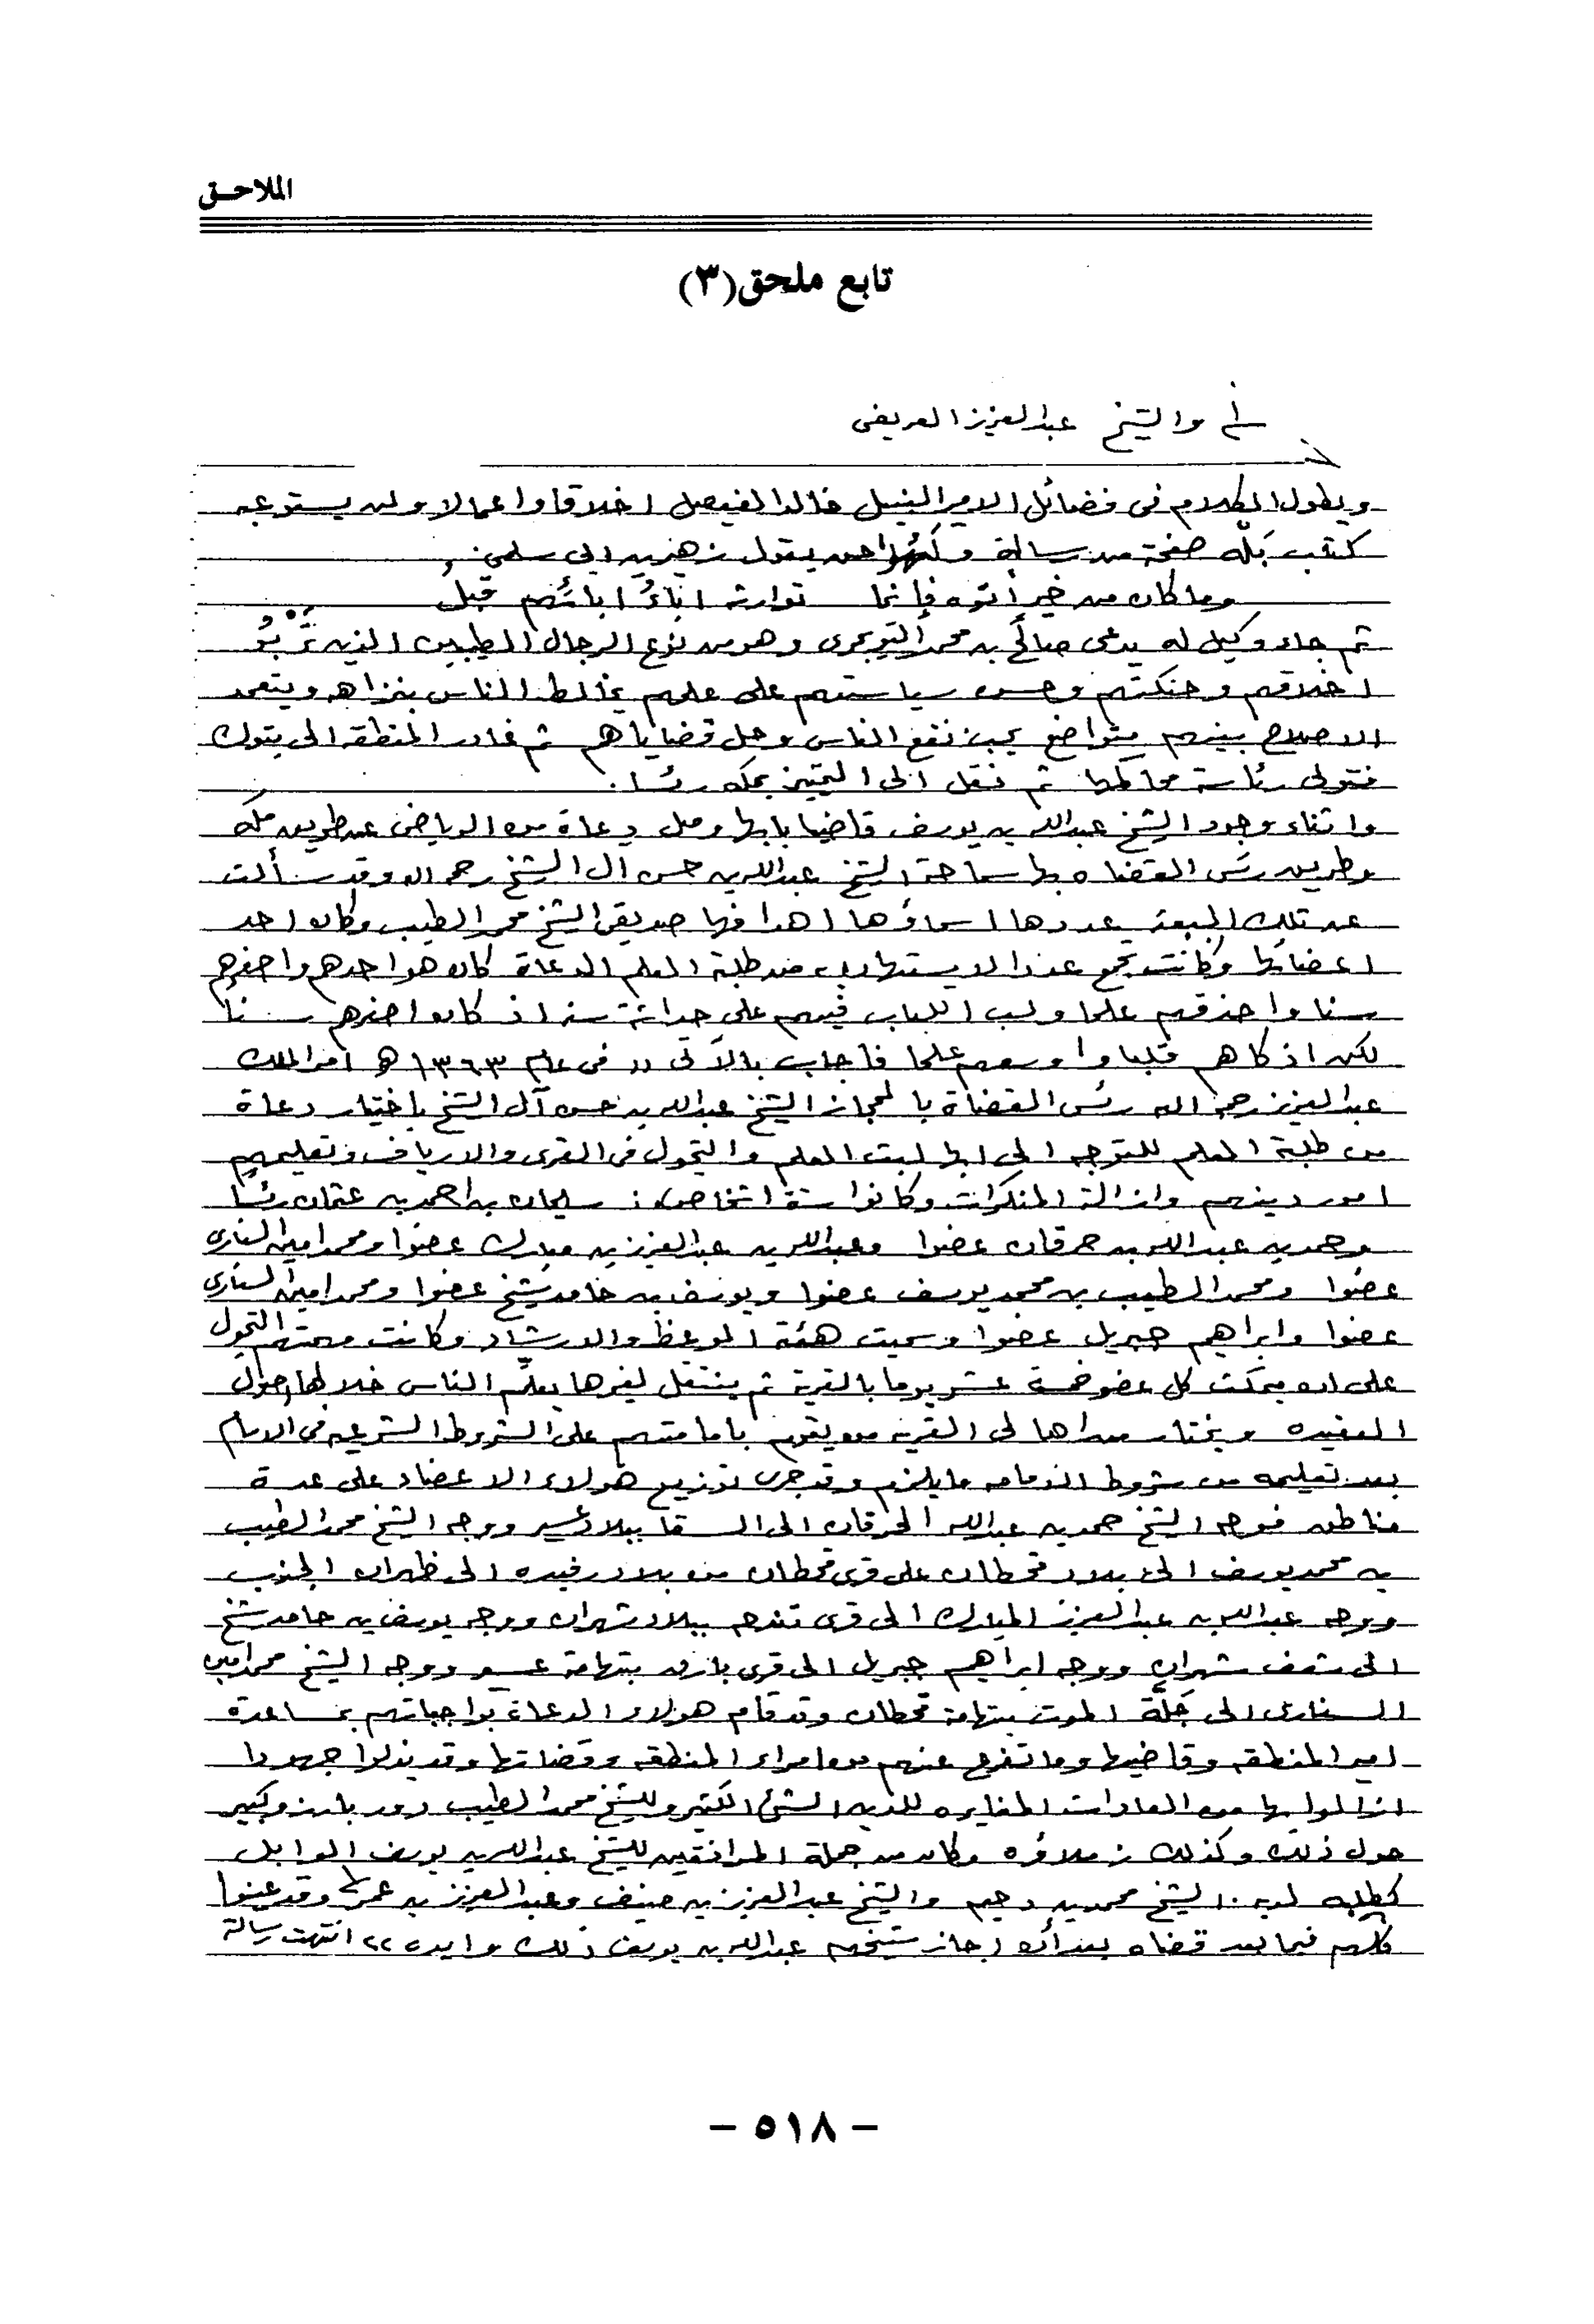 الملاحـق
تابع ملحق (٣)
والشيخ عبدالعزيز العريفي
ويطول الكلام في فضائل الامير النبيل خالد الفيصل اخلاقا واعمالا ولن يستوعبه
كتاب بَلْه صفحة من رسالة يقول زهير بن ابي سلمى
وما كان من خير أتوه فإنما توارثه اباءُ ابائهم قبلُ
ثم جاء وكيل له يدعى صالح بن محمد التويجري وهو من نوع الرجال الطيبين الذين
اخلاقهم وحنكتهم وحسن سياستهم على علمهم يخالط الناس بنزاهه ويتعمد
الاصلاح بينهم متواضع يحب نفع الناس وحل قضاياهم ثم غادر المنطقه الى تبوك
فتولى رئاسة محاكمها ثم نقل الى التمييز بمكه رئسا .
واثناء وجود الشيخ عبدالله بن يوسف قاضيا بابها وصل دعاة من الرياض عن طريق مكه
وطريق رئس القضاه بها سماحة الشيخ عبدالله بن حسن ال الشيخ رحمه الله وقد سألت
عن تلك البعثة عددها اسماؤها اهدافها صديقي الشيخ محمد الطيب وكان احد
اعضائها وكانت تجمع عددا لا يستهان به من طلبة العلم الدعاة كان هو احدهم واصغرهم
سنا واحذقهم علما ولب اللباب فيهم على حداثة سنه اذ كان اصغرهم سنًا
لكن اذكاهم قلبا واوسعهم علما فاجاب بالآتي (( في عام ١٣٦٣ هـ امر الملك
عبدالعزيز رحمه الله رئس القضاة بالحجاز الشيخ عبدالله بن حسن آل الشيخ باختيار دعاة
من طلبة العلم للتوجه الى ابها لبث العلم والتجول في القرى والارياف وتعليمهم
امور دينهم وازالة المنكرات وكانوا ستة اشخاص : سليمان بن احمد بن عثمان رئسا
وحمد بن عبدالله بن حرقان عضوا وعبدالله بن عبدالعزيز بن مبارك عضوا ومحمد امين السناري
عضوا ومحمد الطيب بن محمد يوسف عضوا ويوسف بن حامد شيخ عضوا ومحمد امين السناري
عضوا وابراهيم جبريل عضوا وسميت هئة الوعظ والارشاد وكانت مهمتهم التجول
على ان يمكث كل عضو خمسة عشر يوما بالقرية ثم ينتقل لغيرها يعلّم الناس خلالها اصول
العقيده ويختار من اهالي القريه من يقوم بامامتهم على الشروط الشرعيه في الامام
بعد تعليمه من شروط الامامه ما يلزم وقد جرى توزيع هولاء الاعضاء على عدة
مناطق فوجه الشيخ حمد بن عبدالله الحرقان الى السقا ببلاد عسير ووجه الشيخ محمد الطيب
بن محمد يوسف الى بلاد قحطان على قرى قحطان من بلاد رفيده الى ظهران الجنوب
ووجه عبدالله بن عبدالعزيز المبارك الى قرى تندحه ببلاد شهران ووجه يوسف بن حامد شيخ
الى شعف شهران ووجه ابراهيم جبريل الى قرى بتهامة عسير ووجه الشيخ محمد امين
السناري الى جَلَّة الموت بتهامة قحطان وقد قام هولاء الدعاة بواجباتهم بمساعدة
امير المنطقه وقاضيها وما تفرع عنهم من امراء المنطقه وقضاتها وقد بذلوا جهودا
ازالوا بها من العادات المغايره للدين الشئ الكثير وللشيخ محمد الطيب دور بارز وكبير
حول ذلك وكذلك زملاؤه وكان من جملة المرافقين للشيخ عبدالله بن يوسف الوابل
كطلبه لديه .. الشيخ محمد بن دحيم والشيخ عبدالعزيز بن حنيف وعبدالعزيز بن عمر وقد عينوا
كلهم فيما بعد قضاه بعد أن اجاز شيخهم عبدالله بن يوسف ذلك وايده )) انتهت رسالة
- ٥١٨ -